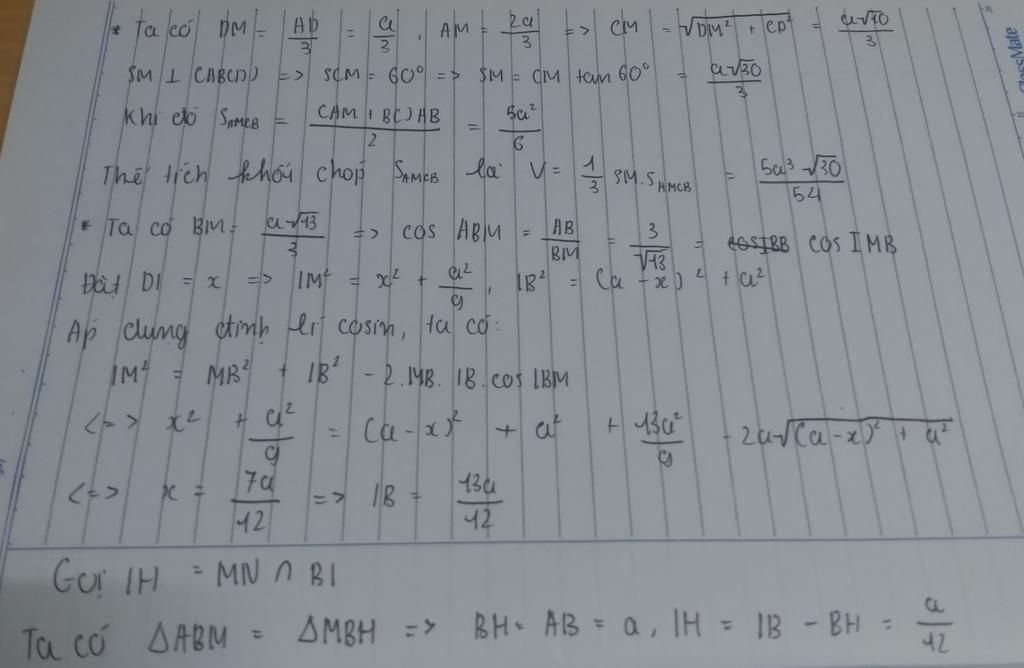 * Ta có DM = AD/3 = a/3, AM = 2a/3 => CM = √(DM² + CD²) = a√10/3
SM ⊥ (ABCD) => SCM = 60° => SM = CM tan 60° = a√30/3
Khi đó S_AMCB = (AM + BC)AB/2 = 5a²/6
Thể tích khối chóp S_AMCB là V = 1/3 SM.S_AMCB = 5a³√30/54
* Ta có BM = a√13/3 => cos ABM = AB/BM = 3/√13 = cos IMB
Đặt DI = x => IM² = x² + a²/9, IB² = (a - x)² + a²
Áp dụng định lí cosin, ta có:
IM² = MB² + IB² - 2.MB.IB.cos IBM
<=> x² + a²/9 = (a-x)² + a² + 13a²/9 - 2a√((a-x)² + a²)
<=> x = 7a/12 => IB = 13a/12
Gọi IH = MN ∩ BI
Ta có ΔABM = ΔMBH => BH = AB = a, IH = IB - BH = a/12
classMate